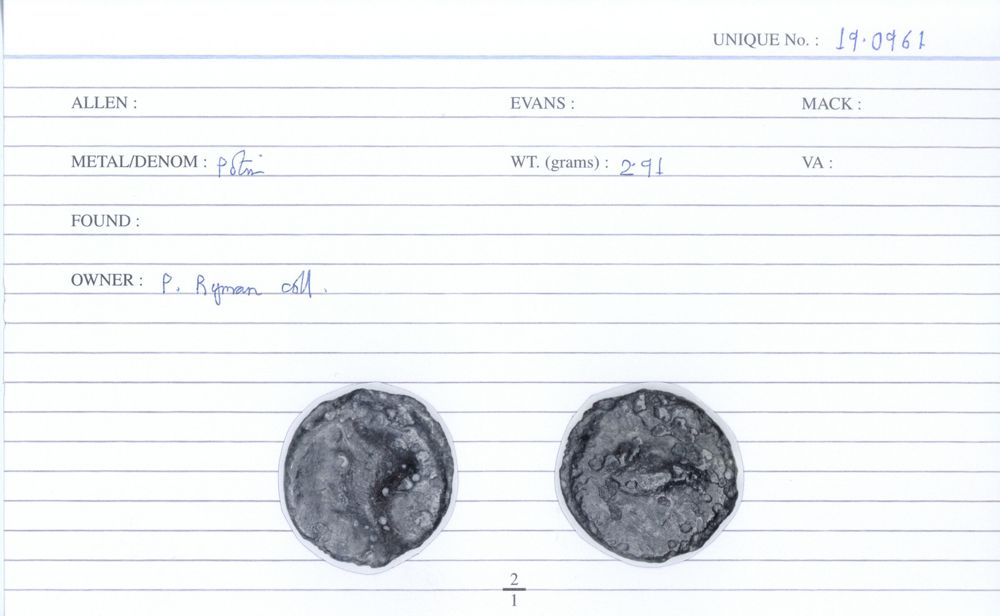 UNIQUE No. : 19.0961
ALLEN : EVANS : MACK :
METAL/DENOM : Potin WT. (grams) : 2.91 VA :
FOUND :
OWNER : P. Ryman coll.
2
1